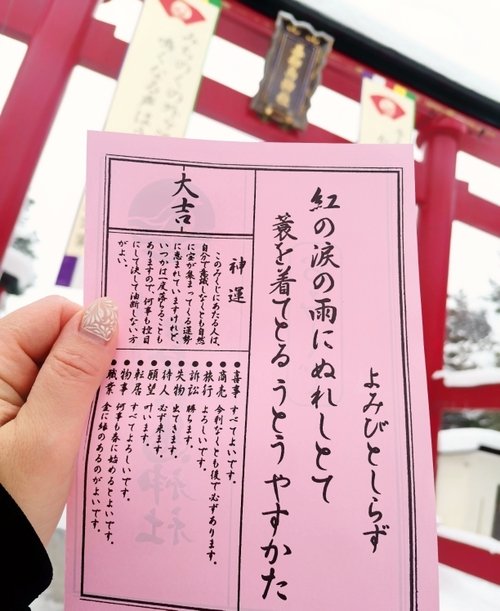 よみびとしらず
紅の涙の雨にぬれしとて
蓑を着てとる うとう やすかた
大吉
神運
このみくじにあたる人は、
自分で意識しなくとも自然
に宝が集まってくる運勢
に恵まれていますけれど、
いつかは一度落ちることも
ありますので、何事も控目
にして決して油断しない方
がよい。
●喜事 すべてよいです。
●商売 今利なくとも後で必ずあります。
●旅行 よろしいです。
●訴訟 勝ちます。
●失物 出てきます。
●待人 必ず来ます。
●願望 叶います。
●転居 すべてよろしいです。
●物事 何事も春に始めるとよいです。
●職業 金に縁のあるのがよいです。